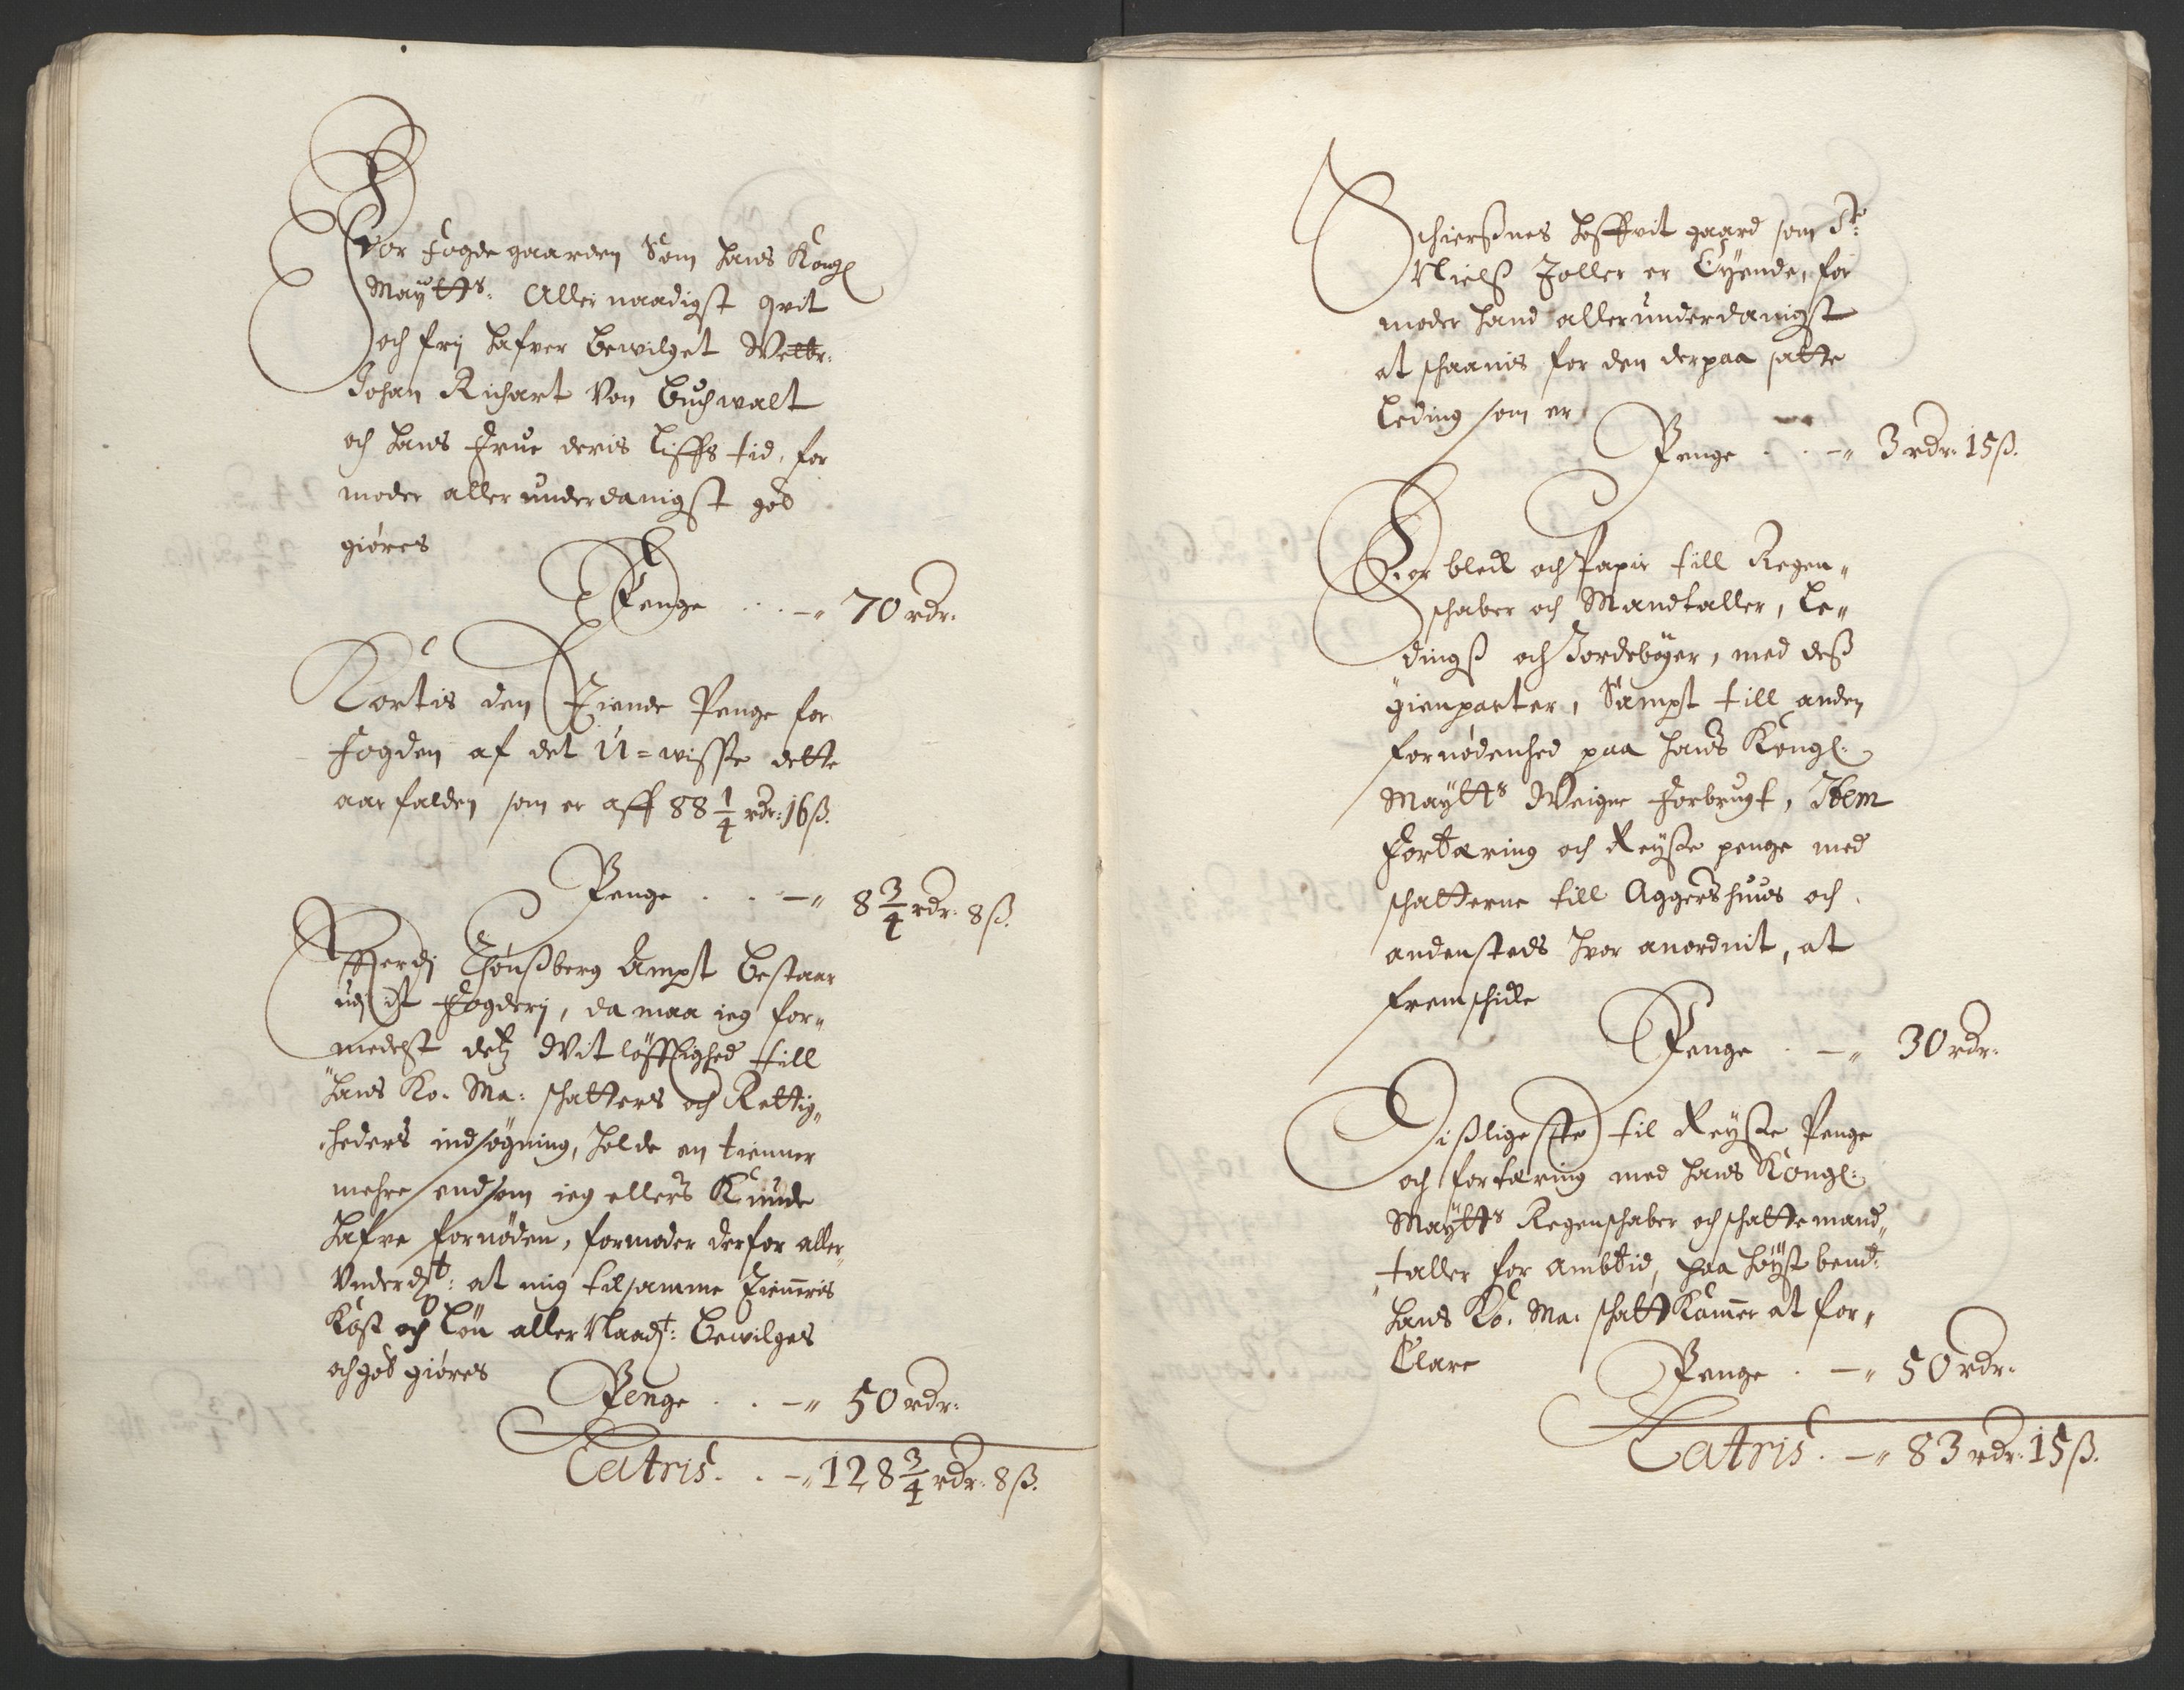 For Fogde gaarden Som hans Kongl
Maÿtts: Aller naadigst qvit
och frj hafver bewilget Welbr:
Johan Richart Von Buchwalt
och hans Frue deris Liffs tid, for
moder aller underdanigst god
giøres
Penge . . . –„ 70 rdr:
Kortis den Tiende Penge for
Fogden af det U=wisse dette
aar falden som er aff 88 1/4 rdr: 16 ß.
Penge . . –„ 8 3/4 rdr: 8 ß.
Efferdj Thønßberg Ampt bestaar
udj it Fogderj, da maa ieg for„
medelst detz Vit løfftighed till
hans Ko: Ma: schatters och Rettig„
heders indsøgning, holde en tienner
mehre end som ieg ellers Kunde
hafve fornøden, formoder derfor aller„
Underdst: at mig til samme Tienneris
Kost och Løn aller Naadst: bewilges
och god giøres
Penge . . –„ 50 rdr:
Latris . . –„ 128 3/4 rdr: 8 ß.
Schierßnes hoffvit gaard som Sr:
Nielß Toller er Eÿende, for
moder hand allerunderdanigst
at schaanis for den derpaa satte
Leding som er
Penge . . –„ 3 rdr: 15 ß.
For bleck och Papir till Regen„
schaber och Mandtaller, Le„
dingß och Jordebøger, med deß
gienparter, Sampt till anden
fornødenhed paa hans Kongl:
Maÿtts Weigne forbrugt, Item
fortæring och Reÿsse penge med
schatterne till Aggershuus och
andensteds hvor anordnit, at
fremschicke
Penge . –„ 30 rdr:
Dißligeste til Reÿsse Penge
och fortæring med hans Kongl:
Maÿtts Regenschaber och schatte mand„
taller for ambtid, paa høÿst bemt:
hans Ko: Ma: schatt Kammer at for„
Clare
Penge . –„ 50 rdr:
Latris . –„ 83 rdr: 15 ß.